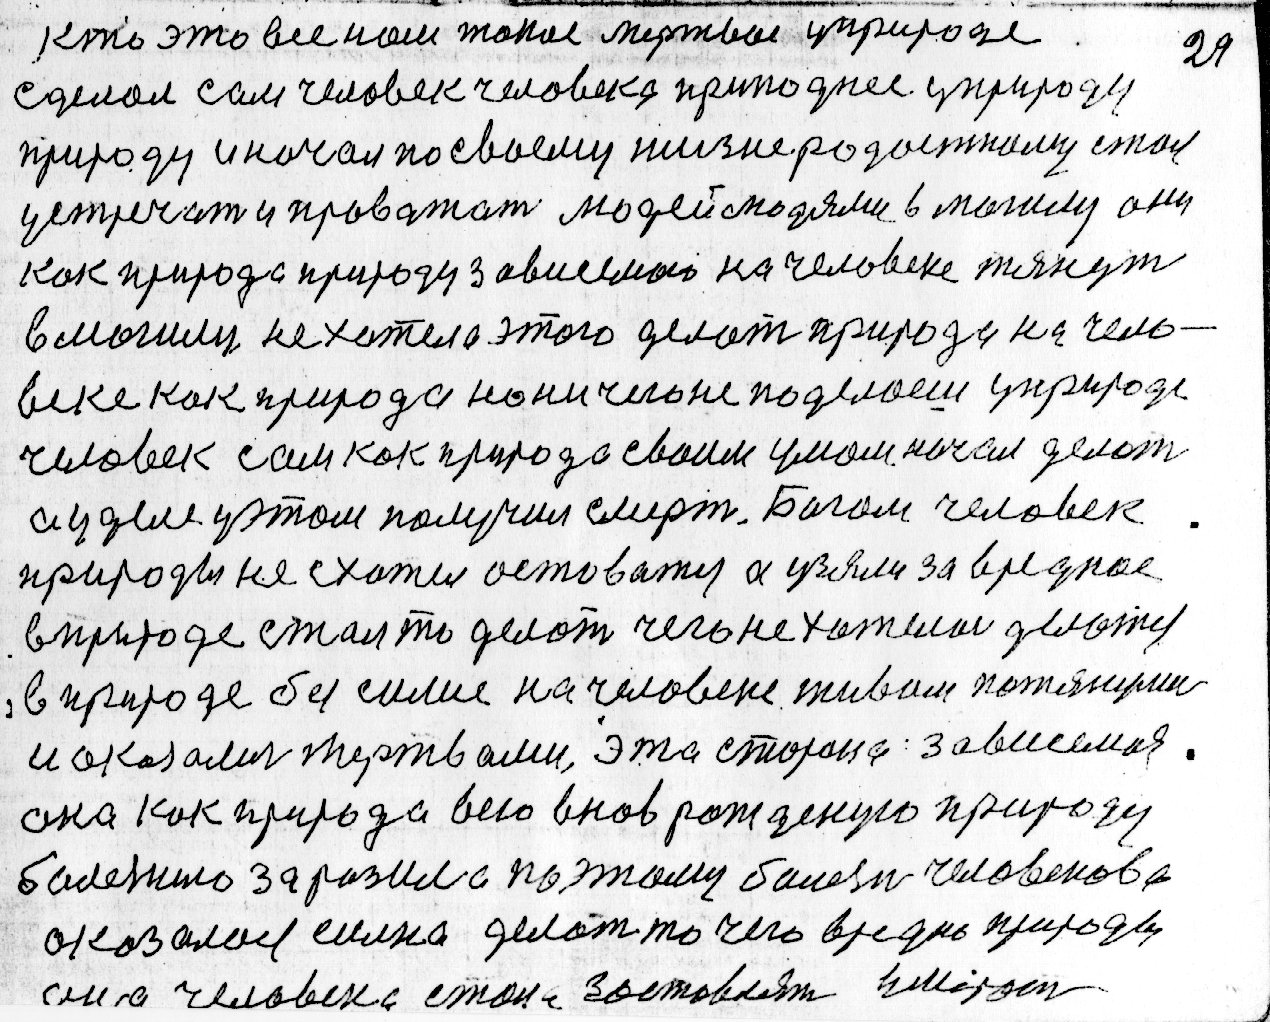 кто это все нам такое мертвое уприроде
29
сделал сам человек человека приподнее уприроду
природу иначал посвоему жизнерадостному стал
устречат и проважат людей людями в могилу они
как природа природу зависемаю на человеке тянут
вмогилу не хотела этого делат природа на чело-
веке как природа но ничегоне поделаеш уприроде
человек сам как природа своим умом начал делат
ауделе уэтом получил смерт. Богом человек
природы не схотел оставатц а узяли за вредное
вприроде стал то делат чегоне хотелос делатц
в природе без силие на человеке живом потянули
и оказалис жертвами, эта сторона зависемая.
она как природа всю внов рожденую природу
болезнию заразила поэтому болезн человекова
оказалос силна делат то чего вредно природы
она человека стана заставлят умират